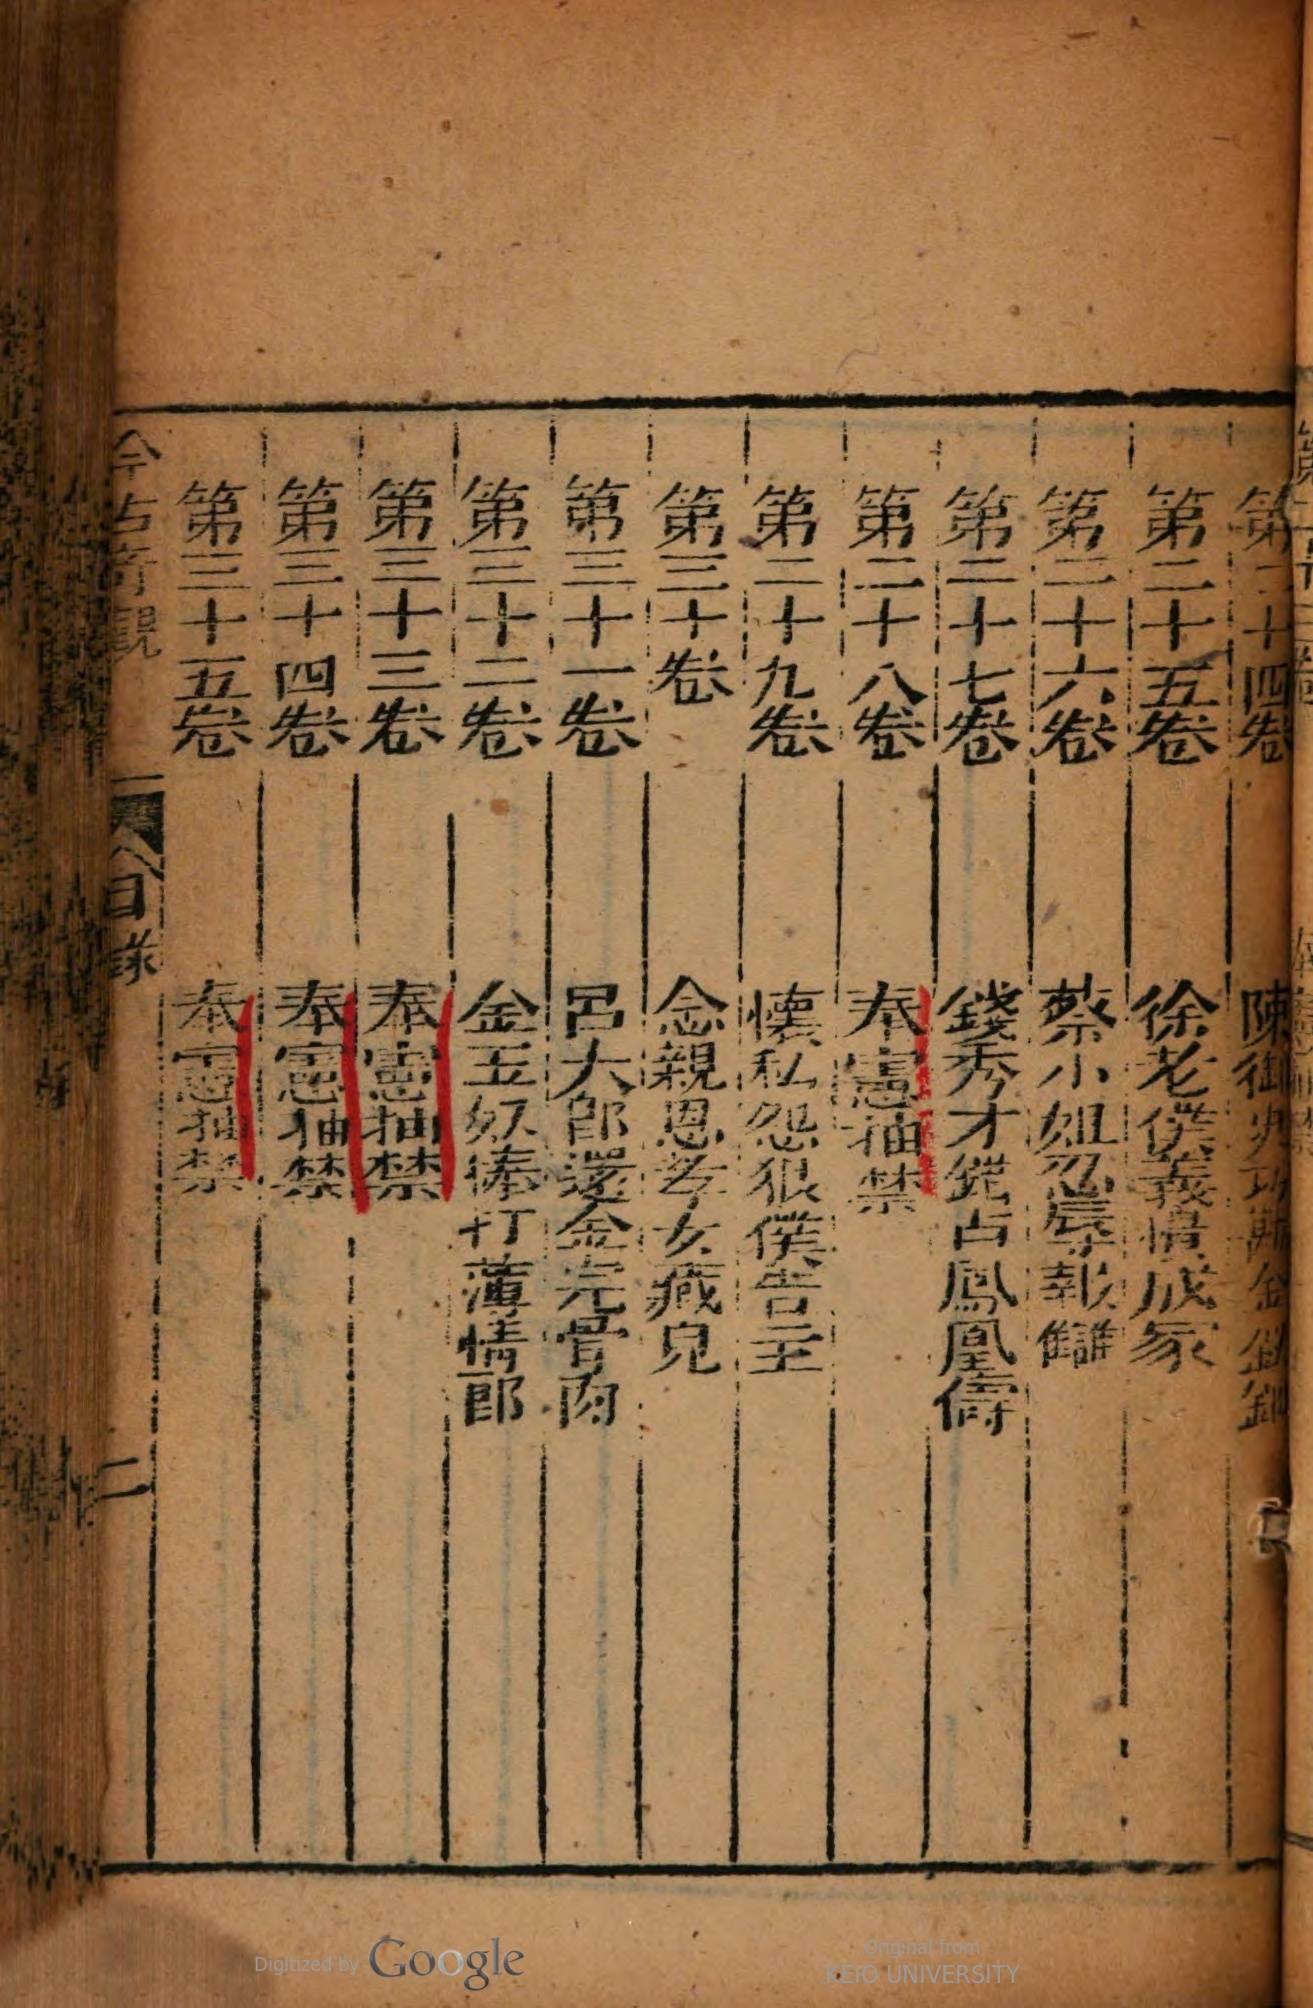 第二十四卷 陳御史巧勘金釵鈿
第二十五卷 徐老僕義憤成家
第二十六卷 蔡小姐忍辱報讐
第二十七卷 錢秀才錯占鳳凰儔
第二十八卷 奉憲抽禁
第二十九卷 懷私怨狠僕告主
第三十卷 念親恩孝女藏兒
第三十一卷 呂大郎還金完骨肉
第三十二卷 金玉奴棒打薄情郎
第三十三卷 奉憲抽禁
第三十四卷 奉憲抽禁
第三十五卷 奉憲抽禁
今古奇觀 目錄 二
Digitized by Google
Original from
KEIO UNIVERSITY